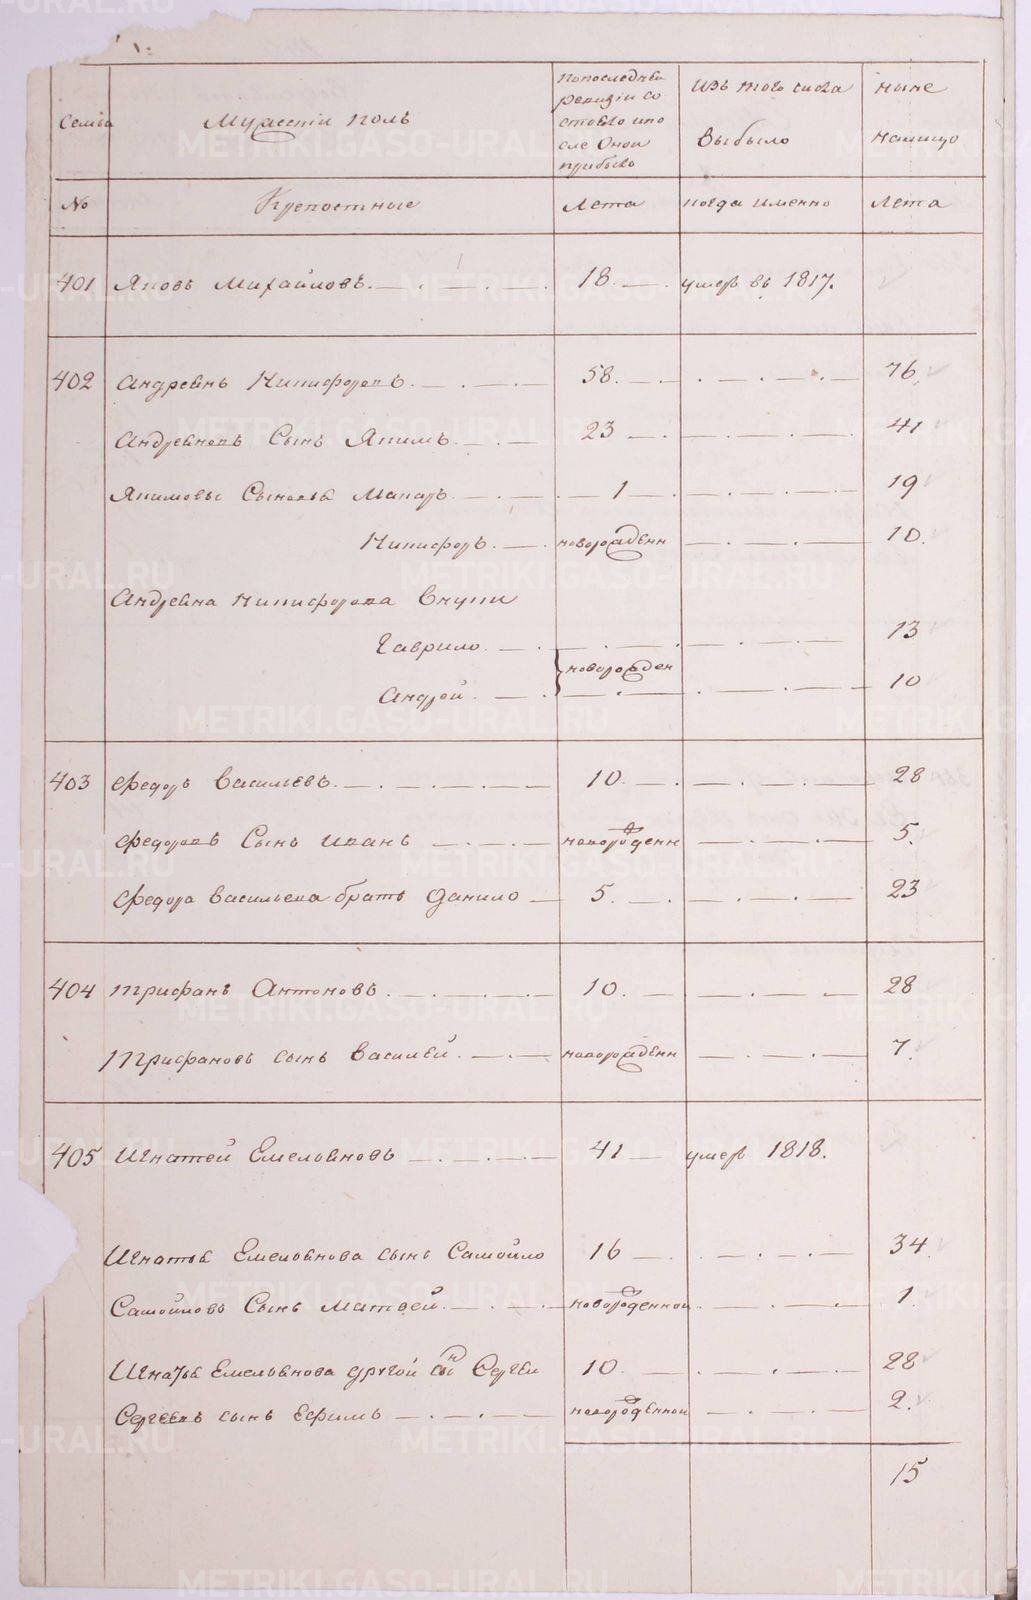 Семьи
№
Мужескій полъ
Крепостные
По последней
ревизіи со
стояло и по
сле оной
прибыло
Лета
Изъ того числа
выбыло
когда именно
ныне
на лицо
Лета
401 Яковъ Михайловъ. 18. умеръ въ 1817.
402 Андреянъ Никифоровъ. 58. 76.
Андреяновъ Сынъ Якимъ. 23 41
Якимовы Сыновья Макаръ 1 19
Никифоръ. новорожденн 10.
Андреяна Никифорова внуки
Гаврило. 13
новорожден
Андрей. 10
403 Федоръ Васильевъ. 10. 28
Федоровъ Сынъ Иванъ новорожденн 5.
Федора Васильева братъ Данило 5. 23
404 Трифанъ Антоновъ. 10. 28
Трифановъ сынъ Василей. новорожденн 7.
405 Игнатей Емельяновъ 41 умеръ 1818.
Игнатья Емельянова сынъ Самойло 16 34.
Самойловъ Сынъ Матвей. новорожденной 1.
Игнатья Емельянова другой сынъ Сергей 10. 28
Сергеевъ сынъ Ефимъ новорожденной 2.
15
METRIKI.GASO-URAL.RU